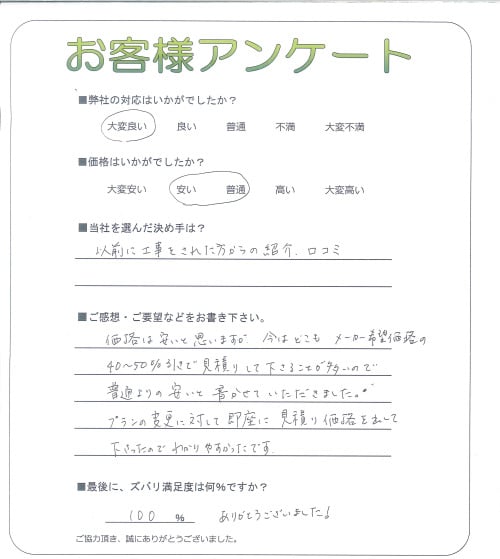 お客様アンケート
■弊社の対応はいかがでしたか？
大変良い 良い 普通 不満 大変不満
■価格はいかがでしたか？
大変安い 安い 普通 高い 大変高い
■当社を選んだ決め手は？
以前に工事をされた方からの紹介、口コミ
■ご感想・ご要望などをお書き下さい。
価格は安いと思いますが 今はどこも メーカー希望価格の
40〜50%引きで見積りして下さることが多いので
普通よりの安いと書かせていただきました。
プランの変更に対して即座に見積り価格を出して
下さったのでわかりやすかったです。
■最後に、ズバリ満足度は何%ですか？
100 % ありがとうございました!
ご協力頂き、誠にありがとうございました。